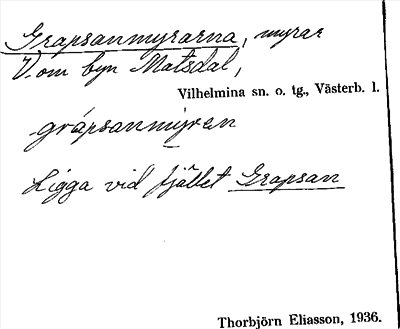 Grapsanmyrarna, myrar
V. om byn Matsdal,
Vilhelmina sn. o. tg., Västerb. l.
grápsanmýren
Ligga vid fjället Grapsan
Thorbjörn Eliasson, 1936.